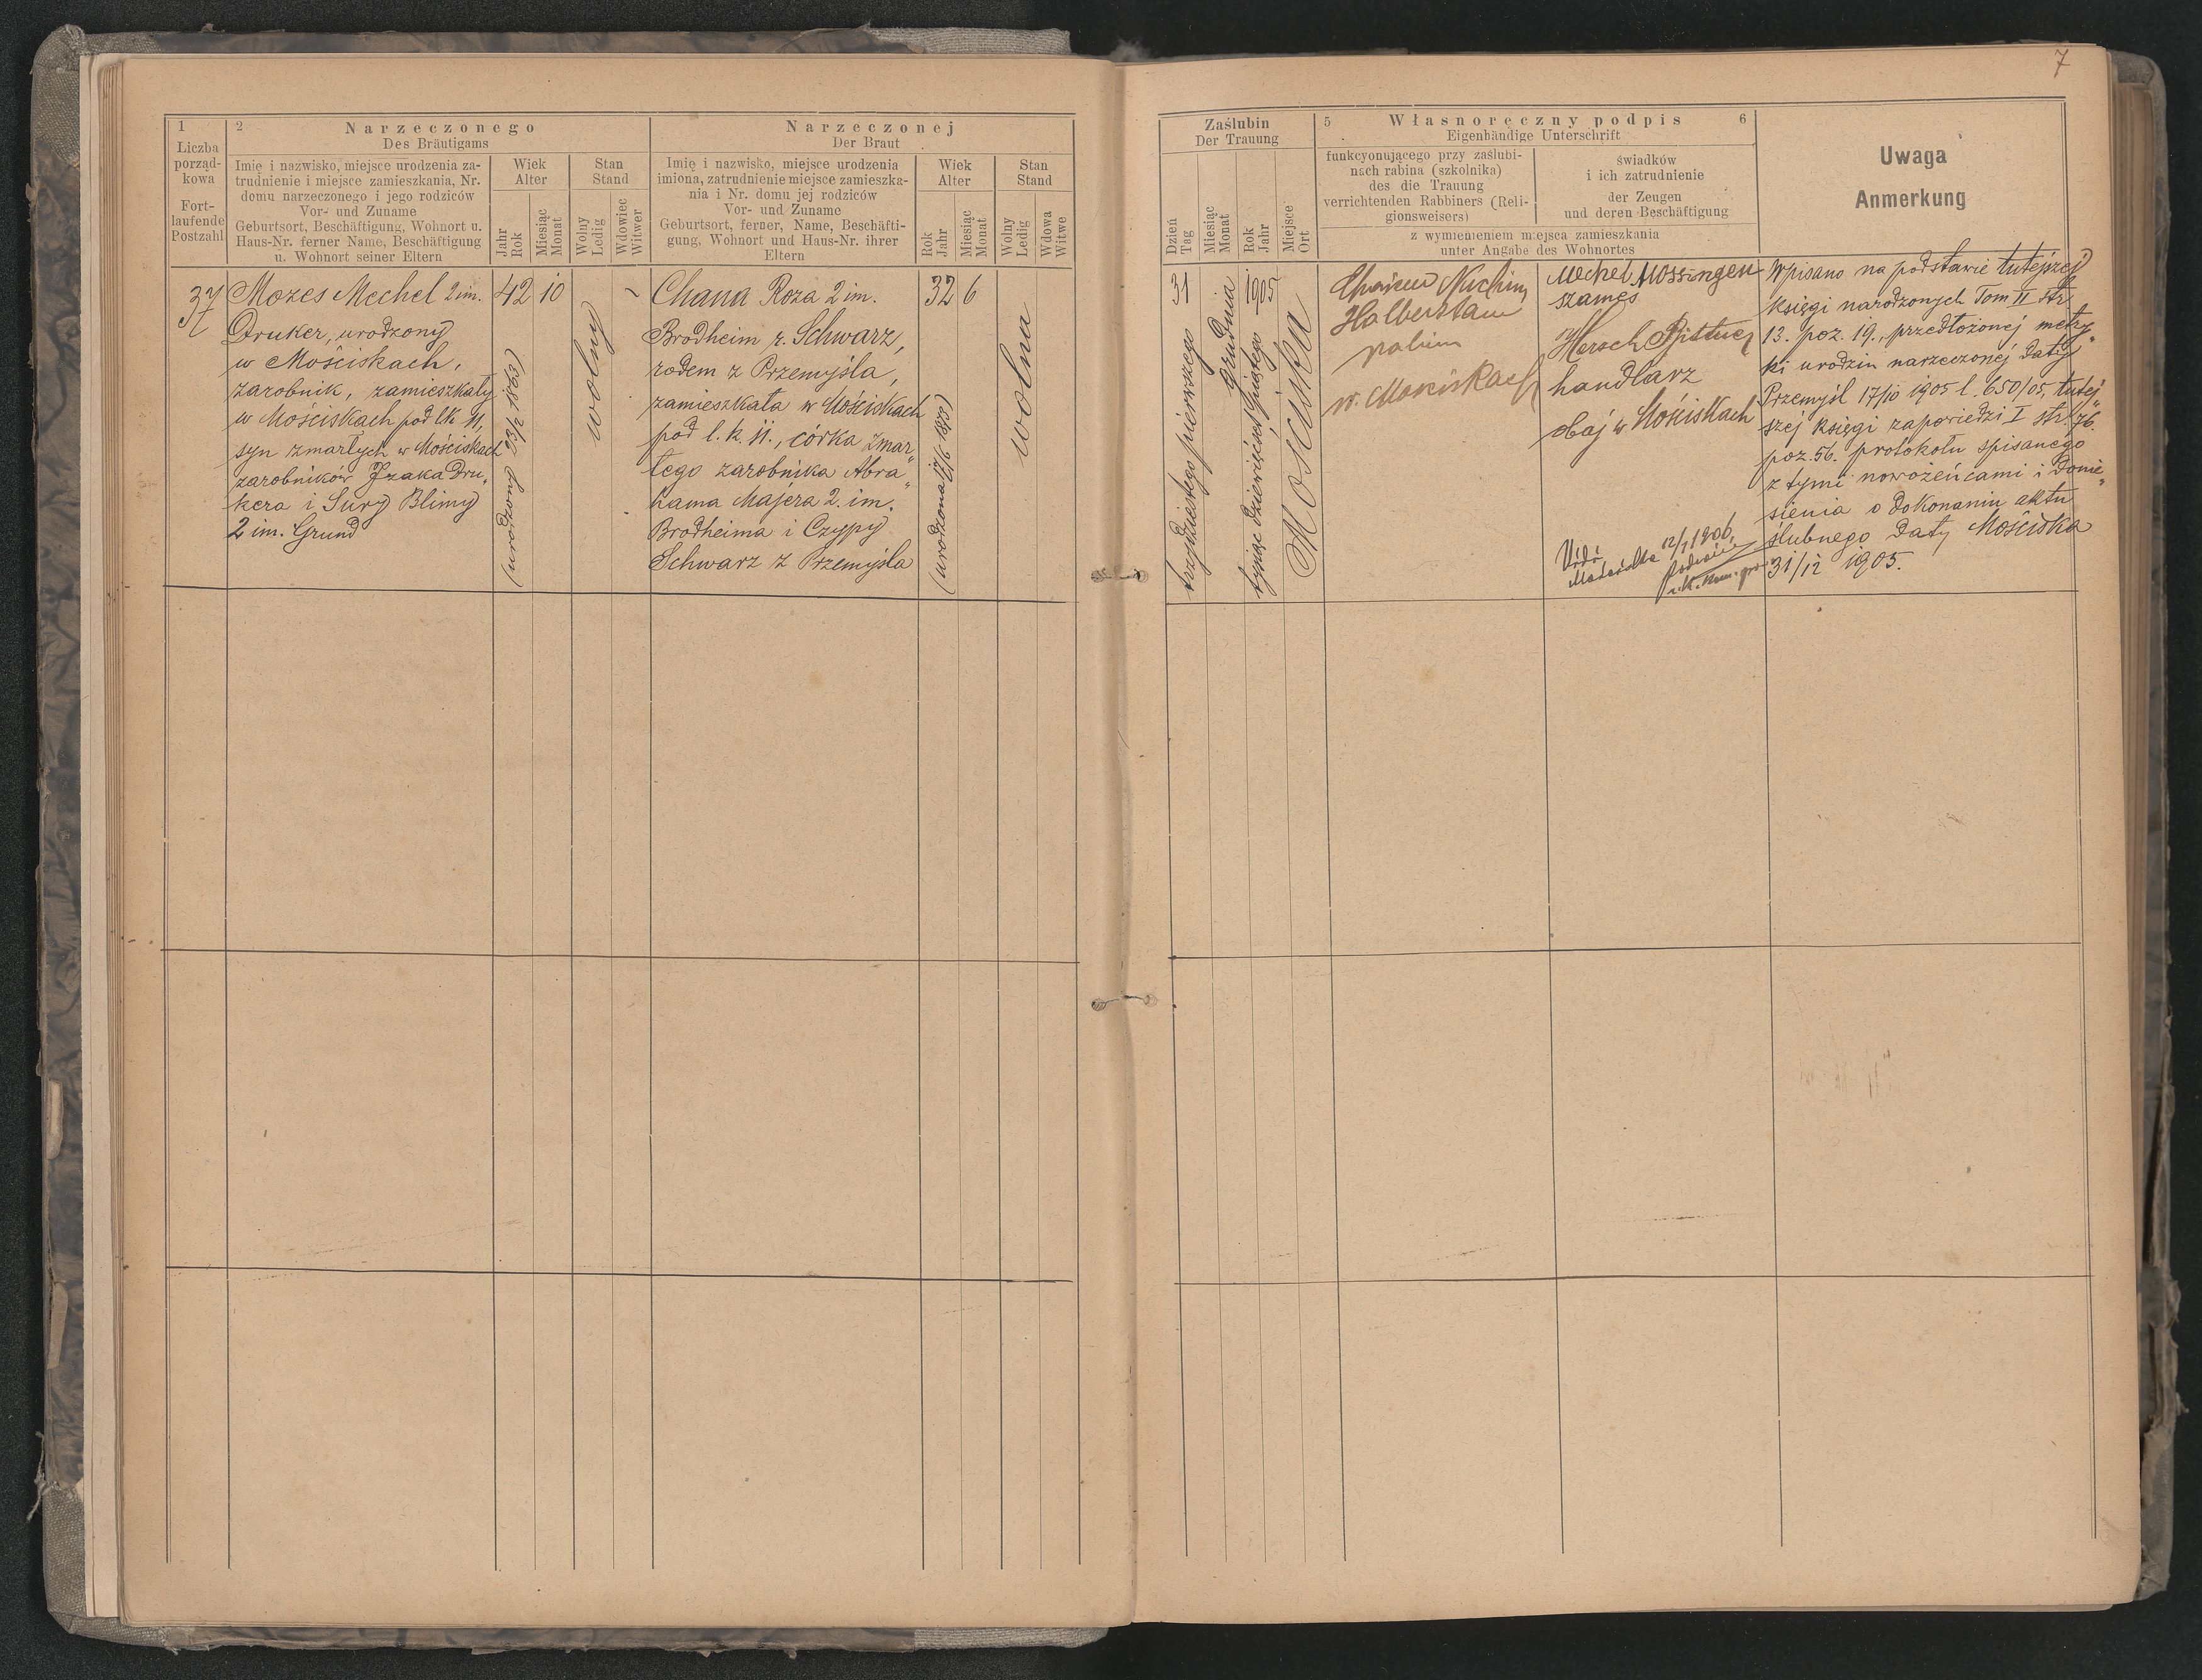 7
1
Liczba
porząd-
kowa
Fort-
laufende
Postzahl
2
Narzeczonego
Des Bräutigams
Imię i nazwisko, miejsce urodzenia za-
trudnienie i miejsce zamieszkania, Nr.
domu narzeczonego i jego rodziców
Vor- und Zuname
Geburtsort, Beschäftigung, Wohnort u.
Haus-Nr. ferner Name, Beschäftigung
u. Wohnort seiner Eltern
Wiek
Alter
Jahr
Rok
Miesiąc
Monat
Stan
Stand
Wolny
Ledig
Wdowiec
Witwer
Narzeczonej
Der Braut
Imię i nazwisko, miejsce urodzenia
imiona, zatrudnienie miejsce zamieszka-
nia i Nr. domu jej rodziców
Vor- und Zuname
Geburtsort, ferner, Name, Beschäfti-
gung, Wohnort und Haus-Nr. ihrer
Eltern
Wiek
Alter
Rok
Jahr
Miesiąc
Monat
Stan
Stand
Wolny
Ledig
Wdowa
Witwe
Zaślubin
Der Trauung
Dzień
Tag
Miesiąc
Monat
Rok
Jahr
Miejsce
Ort
5 Własnoręczny podpis 6
Eigenhändige Unterschrift
funkcyonującego przy zaślubi-
nach rabina (szkolnika)
des die Trauung
verrichtenden Rabbiners (Reli-
gionsweisers)
świadków
i ich zatrudnienie
der Zeugen
und deren Beschäftigung
z wymienieniem miejsca zamieszkania
unter Angabe des Wohnortes
Uwaga
Anmerkung
37
Mozes Mechel 2 im.
Druker, urodzony
w Mościskach,
zarobnik, zamieszkały
w Mościskach pod lk 11,
syn zmarłych w Mościskach
zarobników Izaka Dru„
kera i Sury Blimy
2 im. Grund
42
(urodzony 23/2 1863)
10
wolny
Chana Roza 2 im.
Brodheim r. Schwarz,
rodem z Przemyśla,
zamieszkała w Mościskach
pod l. k. 11., córka zmar„
łego zarobnika Abra„
hama Majera 2. im.
Brodheima i Czypy
Schwarz z Przemyśla
32
(urodzona 17/6 1873)
6
wolna
31
trzydziestego pierwszego
Grudnia
1905
tysiąc dziewięćset piątego
Mościska
Nuchim
Halberstam
rabin
w Mościskach
Mechel Mossingen
szames
Hersch
handlarz
obaj w Mościskach
Vidi
Mościska 12/1 1906.
Wpisano na podstawie tutejszej
księgi narodzonych Tom II str
13. poz. 19., przedłożonej metry„
ki urodzin narzeczonej daty
Przemyśl 17/10 1905 l. 650/05, tutej„
szej księgi zapowiedzi I str. 76.
poz. 56. protokołu spisanego
z tymi nowożeńcami i donie„
sienia o dokonaniu aktu
ślubnego daty Mościska
31/12 1905.